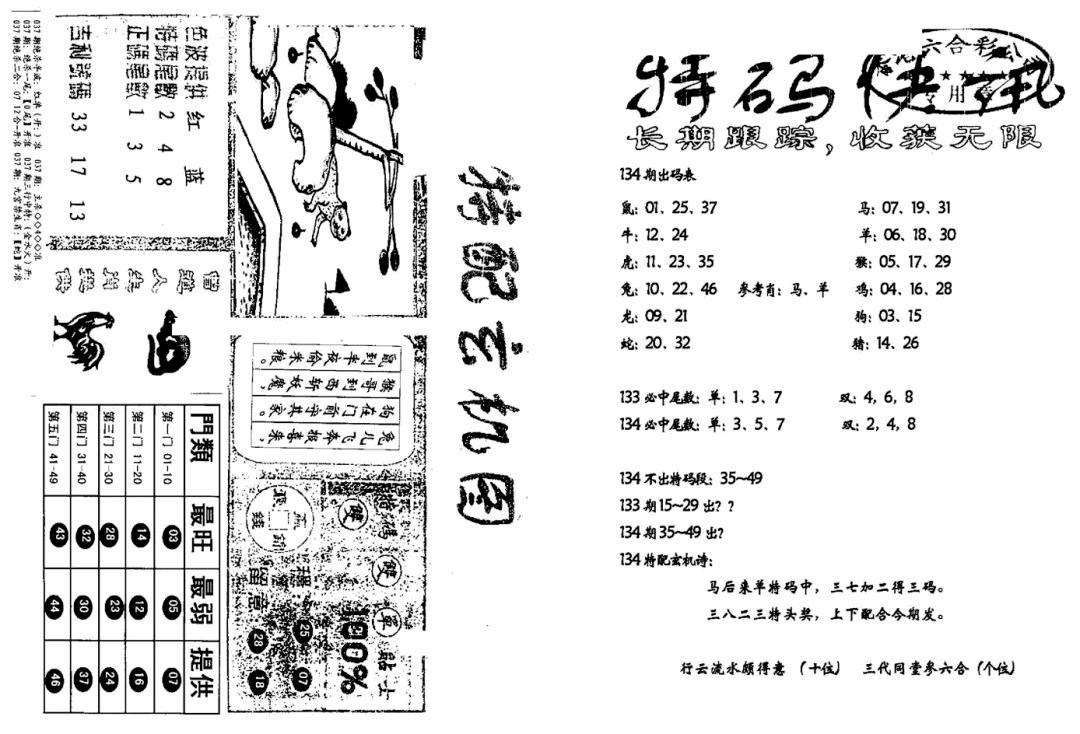 特码快讯
六合彩
专用章
长期跟踪，收获无限
134期出码表
鼠：01、25、37
马：07、19、31
牛：12、24
羊：06、18、30
虎：11、23、35
猴：05、17、29
兔：10、22、46 参考肖：马、羊
鸡：04、16、28
龙：09、21
狗：03、15
蛇：20、32
猪：14、26
133必中尾数：单：1、3、7 双：4，6，8
134必中尾数：单：3、5、7 双：2，4，8
134不出特码段：35~49
133期15~29出？？
134期35~49出?
134特配玄机诗：
马后来单特码中，三七加二得三码。
三八二三特头奖，上下配合今期发。
行云流水颇得意 （十位） 三代同堂参六合（个位）
特配玄机图
色波提供 红 蓝
特碼尾數 2 4 8
正碼尾數 1 3 5
吉利號碼 33 17 13
兔儿飞奔报喜来，
狗在门前守其家。
猴哥到西斩妖魔，
鼠到半夜偷米粮。
門類 最旺 最弱 提供
第一门 01-10 03 05 07
第二门 11-20 14 12 16
第三门 21-30 28 23 24
第四门 31-40 32 30 37
第五门 41-49 43 44 46
特碼
雙
雙
單
貼士
100%
留意
25 07
28 18